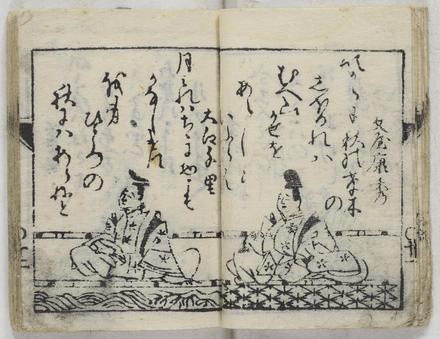 文屋康秀
吹からに秋の草木
の
しほるれハ
むへ山
かせを
あらしと
いふらん
大江千里
月みれハちゝに物こそ
かなしけれ
我身
ひとつの
秋にハあらねと